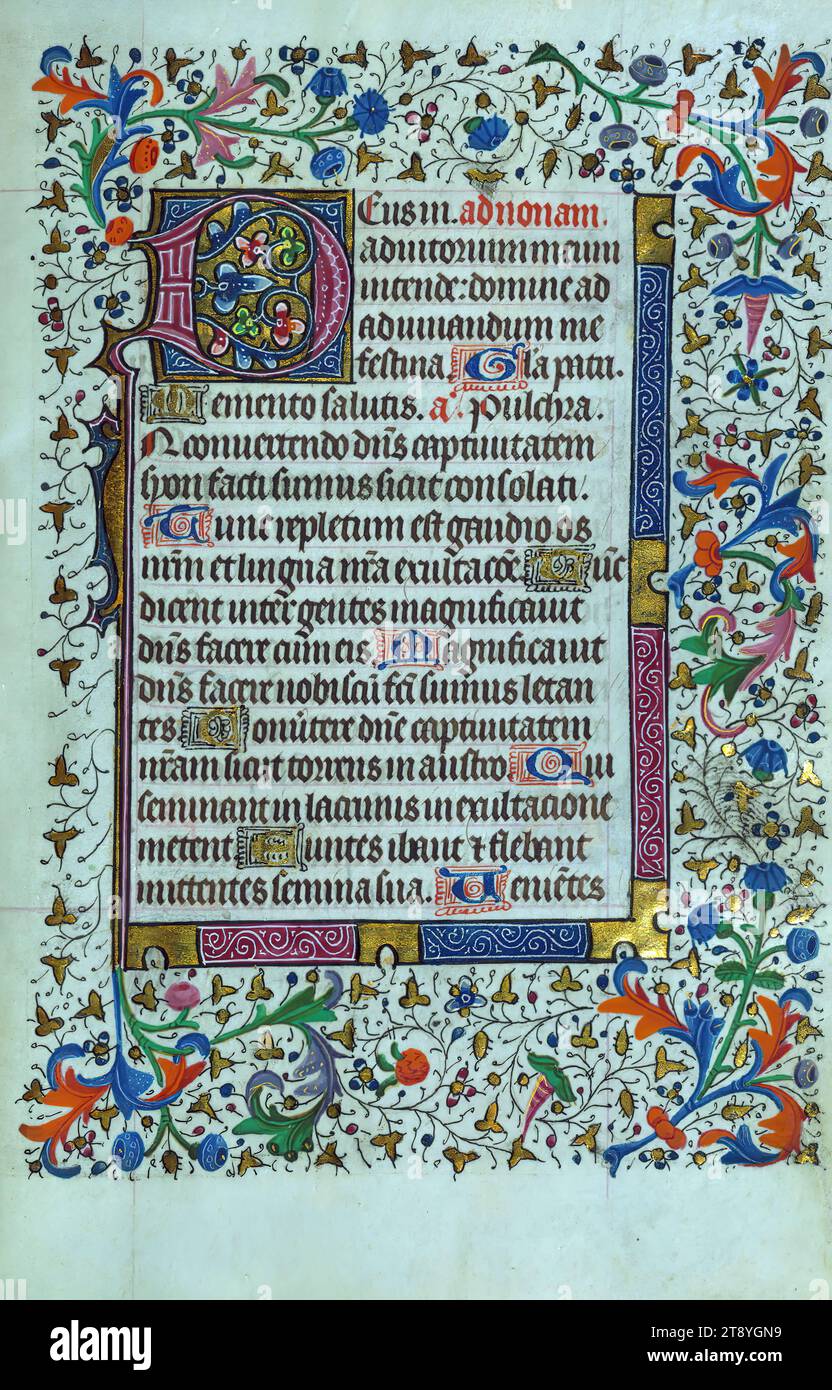 Deus in. ad nonam.
adiutorium meum
intende: domine ad
adiuuandum me
festina. Gl'a patri.
Memento salutis. a'. Pulchra.
In conuertendo dn̄s captiuitatem
syon facti sumus sicut consolati.
Tunc repletum est gaudio os
nr̄m et lingua nr̄a exultac̄oe Tūc
dicent inter gentes magnificauit
dn̄s facere cum eis Magnificauit
dn̄s facere nobiscū fc̄i sumus letan
tes Conūtere dn̄e captiuitatem
nr̄am sicut torrens in austro Qui
seminant in lacrimis in exultacione
metent Euntes ibant ⁊ flebant
mittentes semina sua. Ueniētes
alamy
Image ID: 2T8YGN9
www.alamy.com